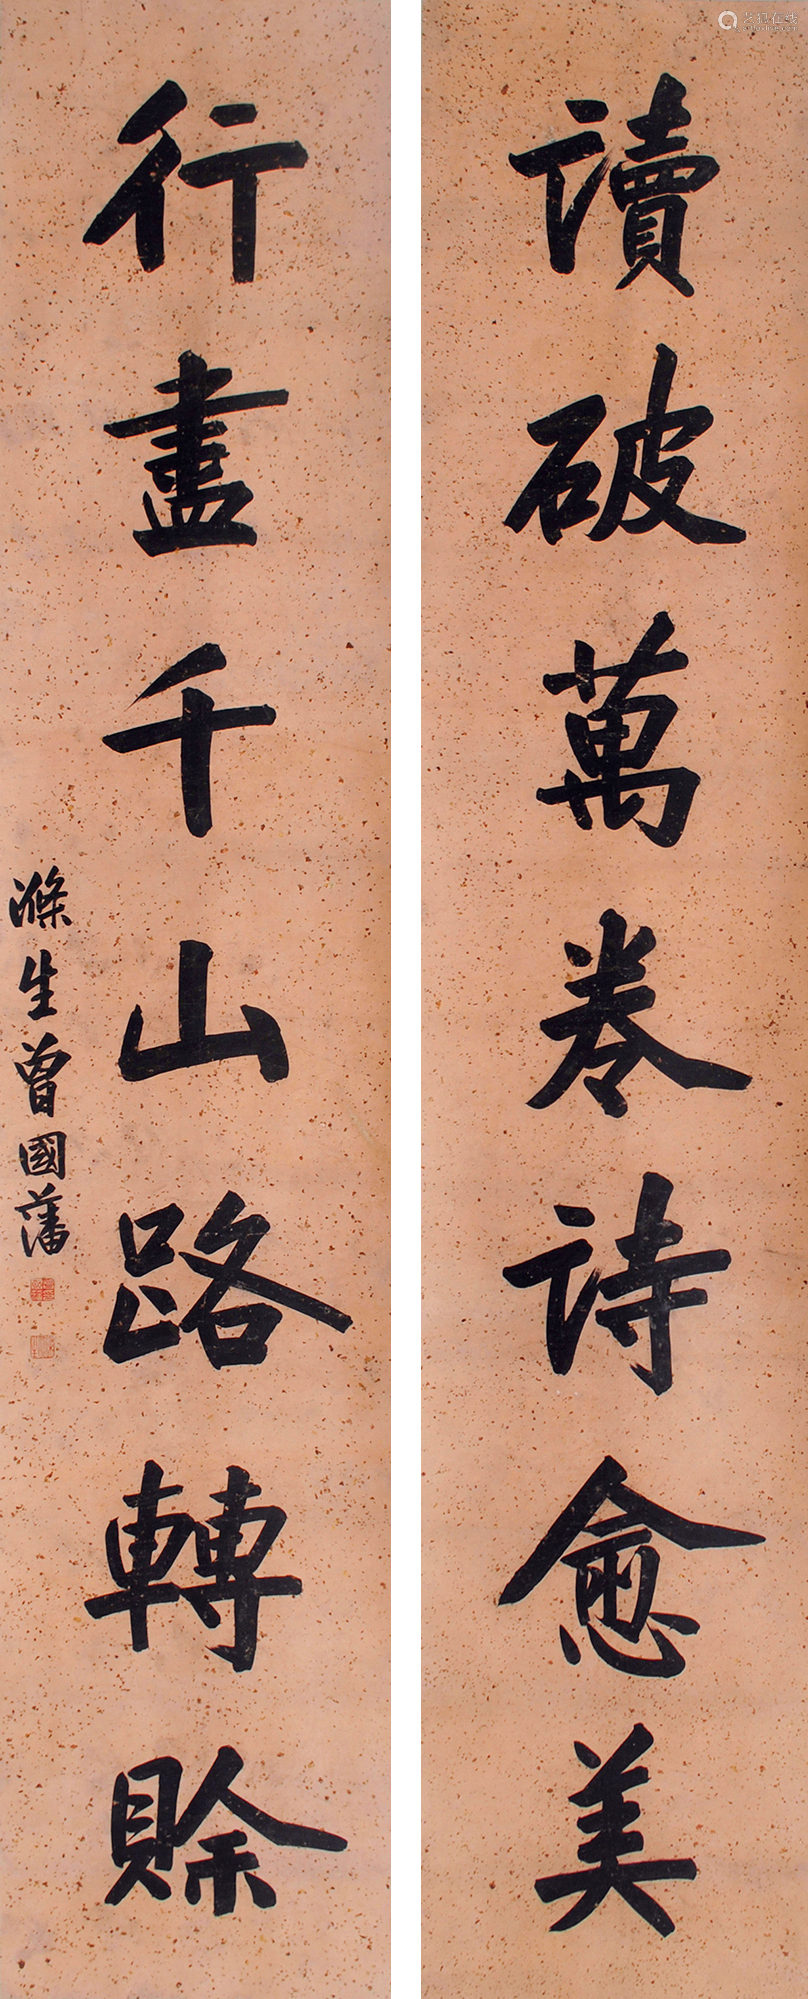 讀破萬卷詩愈美
行盡千山路轉賒
滌生曾國藩
艺狐在线